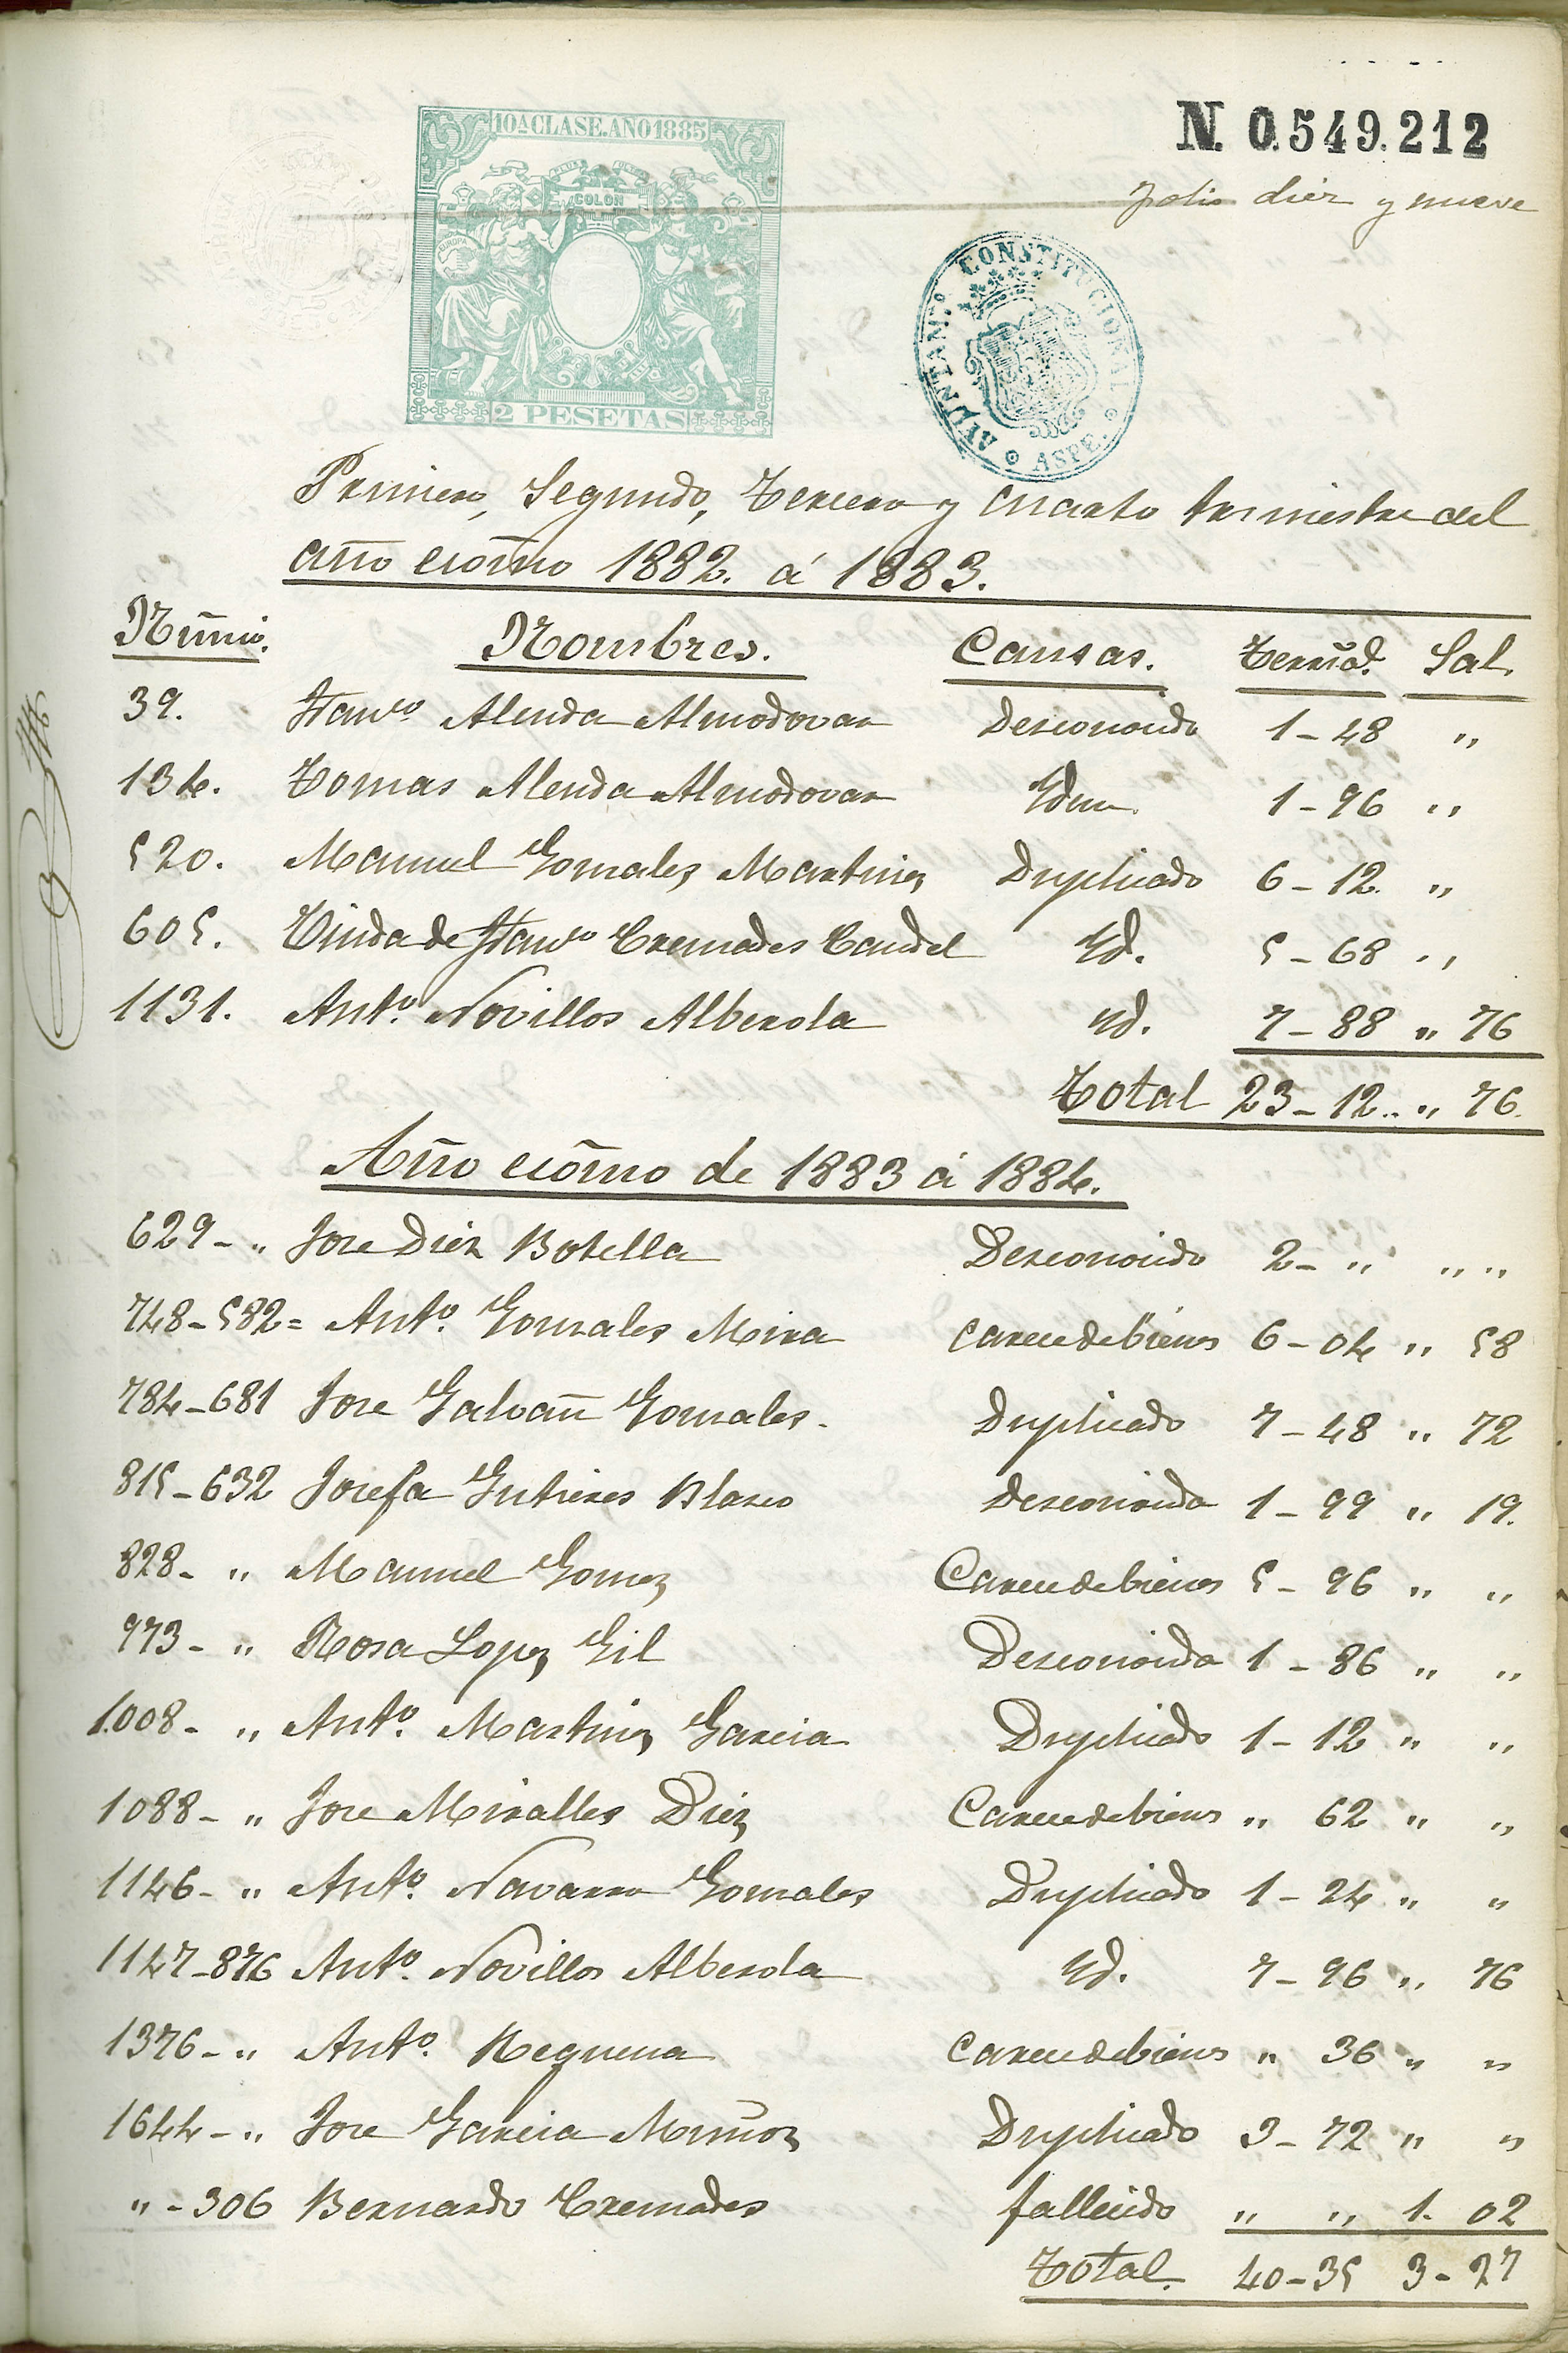 N. 0.549.212
10ª CLASE. AÑO 1885
COLON
EUROPA
2 PESETAS
folio diez y nueve
AYUNTAM.º CONSTITUCIONAL
ASPE.
Primero, Segundo, Tercero y Cuarto trimestre del
año ecōmo 1882. á 1883.
Nūmo. Nombres. Causas. Terrīad. Sal.
39. Franco Alenda Almodovar Desconocido 1-48 "
134. Tomas Alenda Almodovar Ydem 1-96 "
520. Manuel Gonzales Martinez Duplicado 6-12. "
605. Viuda de Franco Cremades Candel Yd. 5-68 "
1131. Antº. Novillos Alberola Yd. 7-88 " 76
Total 23-12.. " 76.
Año ecōmo de 1883 á 1884.
629- " Jose Diez Botella Desconocido 2- " " "
748-582= Antº. Gonzales Mira Carece de bienes 6-04 " 58
784-681 Jose Galvañ Gonzales. Duplicado 7-48 " 72
815-632 Josefa Gutierres Blasco Desconocida 1-99 " 19.
828- " Manuel Gomez Carece de bienes 5-96 " "
973- " Rosa Lopez Gil Desconocida 1-86 " "
1.008- " Antº. Martinez Garcia Duplicado 1-12 " "
1088- " Jose Miralles Diez Carece de bienes " 62 " "
1146- " Antº. Navarro Gonzales Duplicado 1-24 " "
1147-876 Antº. Novillos Alberola Yd. 7-96 " 76
1376- " Antº. Requena Carece de bienes " 36 " "
1644- " Jose Garcia Muñoz Duplicado 3-72 " "
" -306 Bernardo Cremades fallecido " " 1. 02
Total. 40-35 3-27